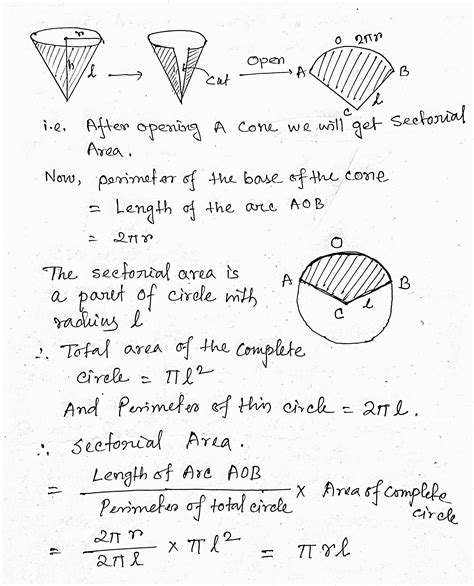 r
h
l
Cut
Open
O 2πr
A B
C l
i.e. After opening A Cone we will get Sectorial
Area.
Now, perimeter of the base of the cone
= Length of the arc AOB
= 2πr
The sectorial area is
a part of circle with
radius l
O
A B
C l
∴ Total area of the complete
circle = πl²
And Perimeter of this circle = 2πl.
∴ Sectorial Area.
= Length of Arc AOB / Perimeter of total circle × Area of complete
circle
= 2πr / 2πl × πl² = πrl